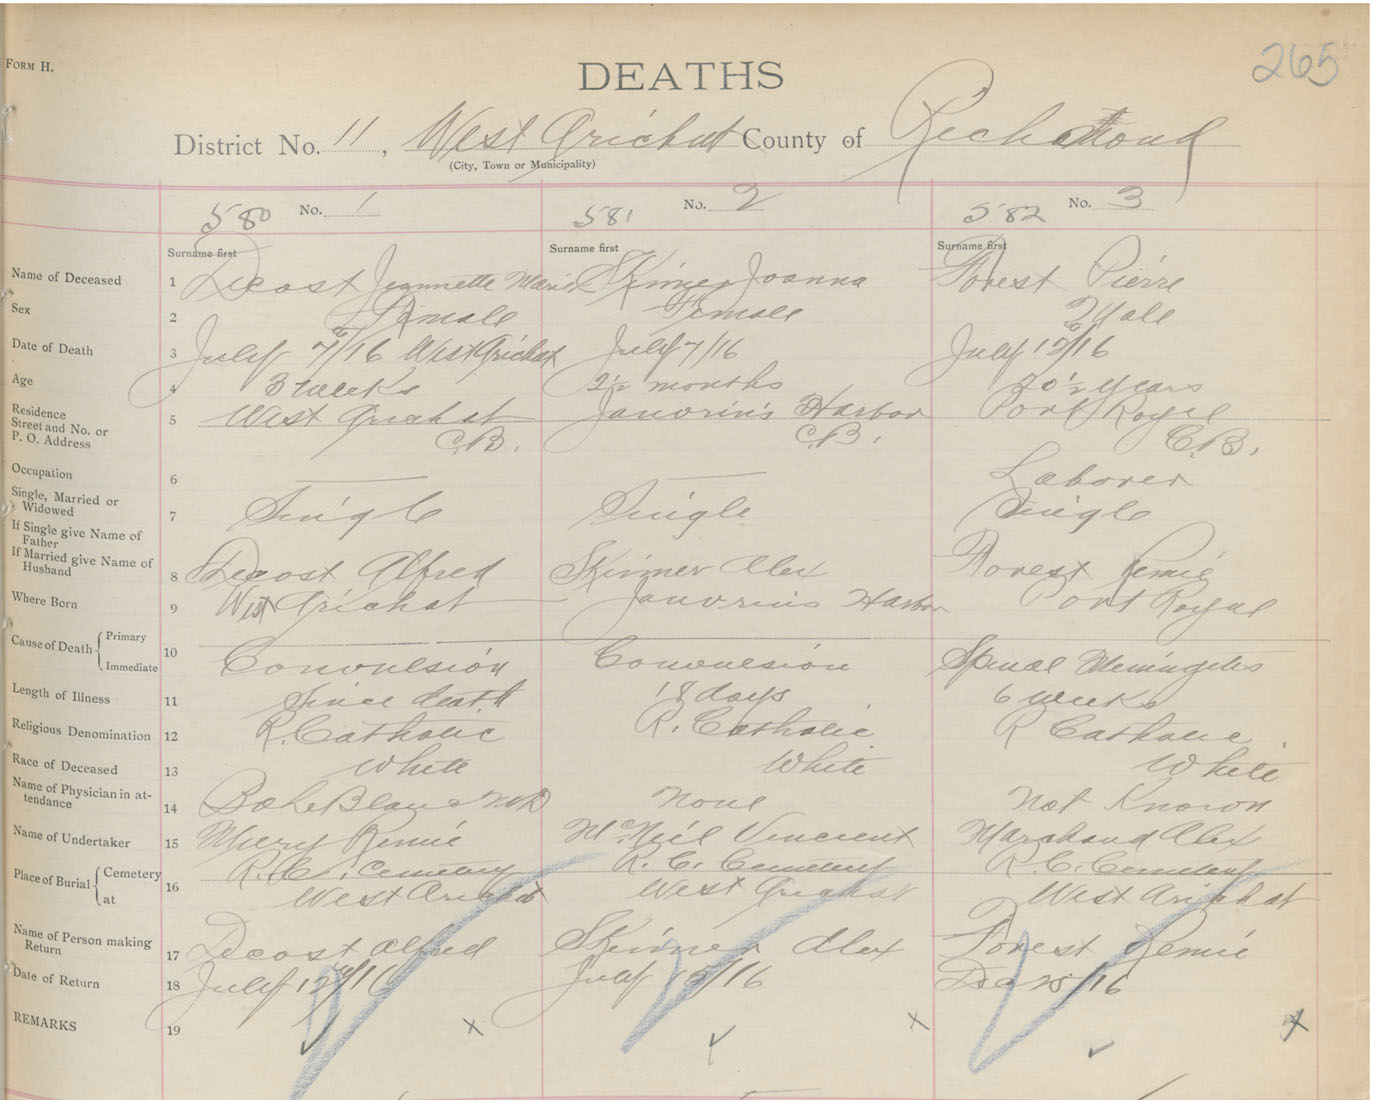 265
FORM H.
DEATHS
District No. 11, West Arichat County of Richmond
(City, Town or Municipality)
580 No. 1 581 No. 2 582 No. 3
Surname first Surname first Surname first
Name of Deceased 1 Decost Jeannette Marie Skinner Joanna Forest Pierre
Sex 2 Female Female Male
Date of Death 3 July 7/16 West Arichat July 7/16 July 12/16
Age 4 3 weeks 2½ months 20½ years
Residence
Street and No. or
P. O. Address 5 West Arichat Janvrin's Harbor Port Royal
C.B. C.B. C.B.
Occupation 6 — — Laborer
Single, Married or
Widowed 7 Single Single Single
If Single give Name of
Father
If Married give Name of
Husband 8 Decost Alfred Skinner Alex Forest Remie
Where Born 9 West Arichat Janvrins Harbor Port Royal
Cause of Death { Primary
Immediate 10 Convulsion Convulsion Spinal Meningetes
Length of Illness 11 Since death 18 days 6 weeks
Religious Denomination 12 R. Catholic R. Catholic R Catholic
Race of Deceased 13 White White White
Name of Physician in at-
tendance 14 LeBlanc MD None Not Known
Name of Undertaker 15 Remie McNeil Vincent Marchand Alex
Place of Burial { Cemetery R. C. Cemetery R. C. Cemetery R. C. Cemetery
at 16 West Arichat West Arichat West Arichat
Name of Person making
Return 17 Decost Alfred Skinner Alex Forest Remie
Date of Return 18 July /16 July /16 Dec 28/16
REMARKS 19 x x x